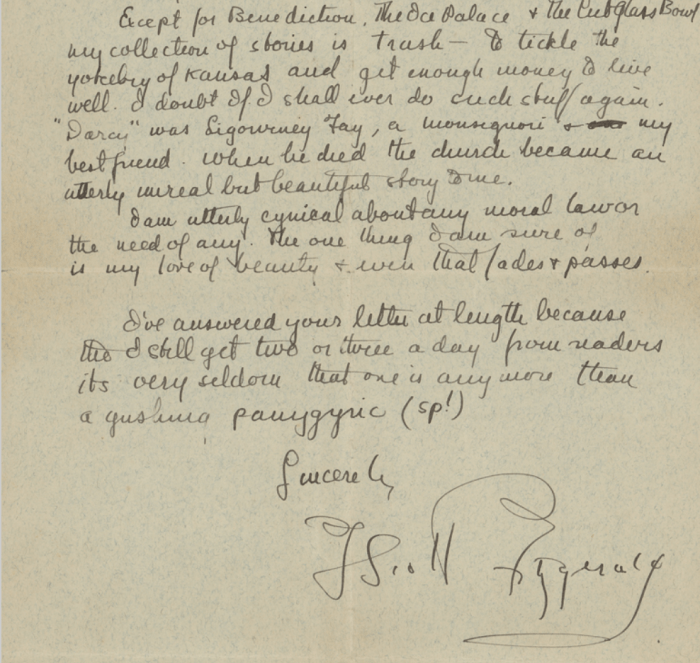 Except for Benediction, The Ice Palace + the Cut Glass Bowl
my collection of stories is trash — to tickle the
yokelry of Kansas and get enough money to live
well. I doubt if I shall ever do such stuff again.
"Darcy" was Sigourney Fay, a monsignori + my
best friend. When he died the church became an
utterly unreal but beautiful story to me.
I am utterly cynical about any moral law or
the need of any. The one thing I am sure of
is my love of beauty + even that fades + passes.
I've answered your letter at length because
tho I still get two or three a day from readers
its very seldom that one is any more than
a gushing panygyric (sp!)
Sincerely
F Scott Fitzgerald